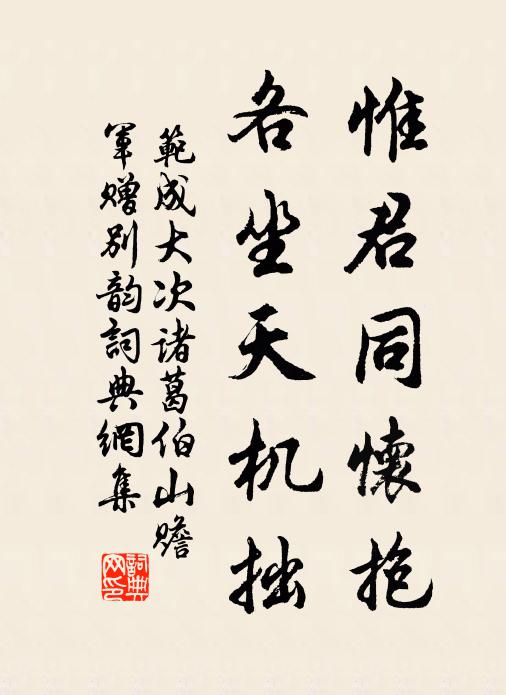 惟君同懷抱
各坐天机拙
範成大次诸葛伯山贍
軍赠别韵詞典網集
詞典
网印